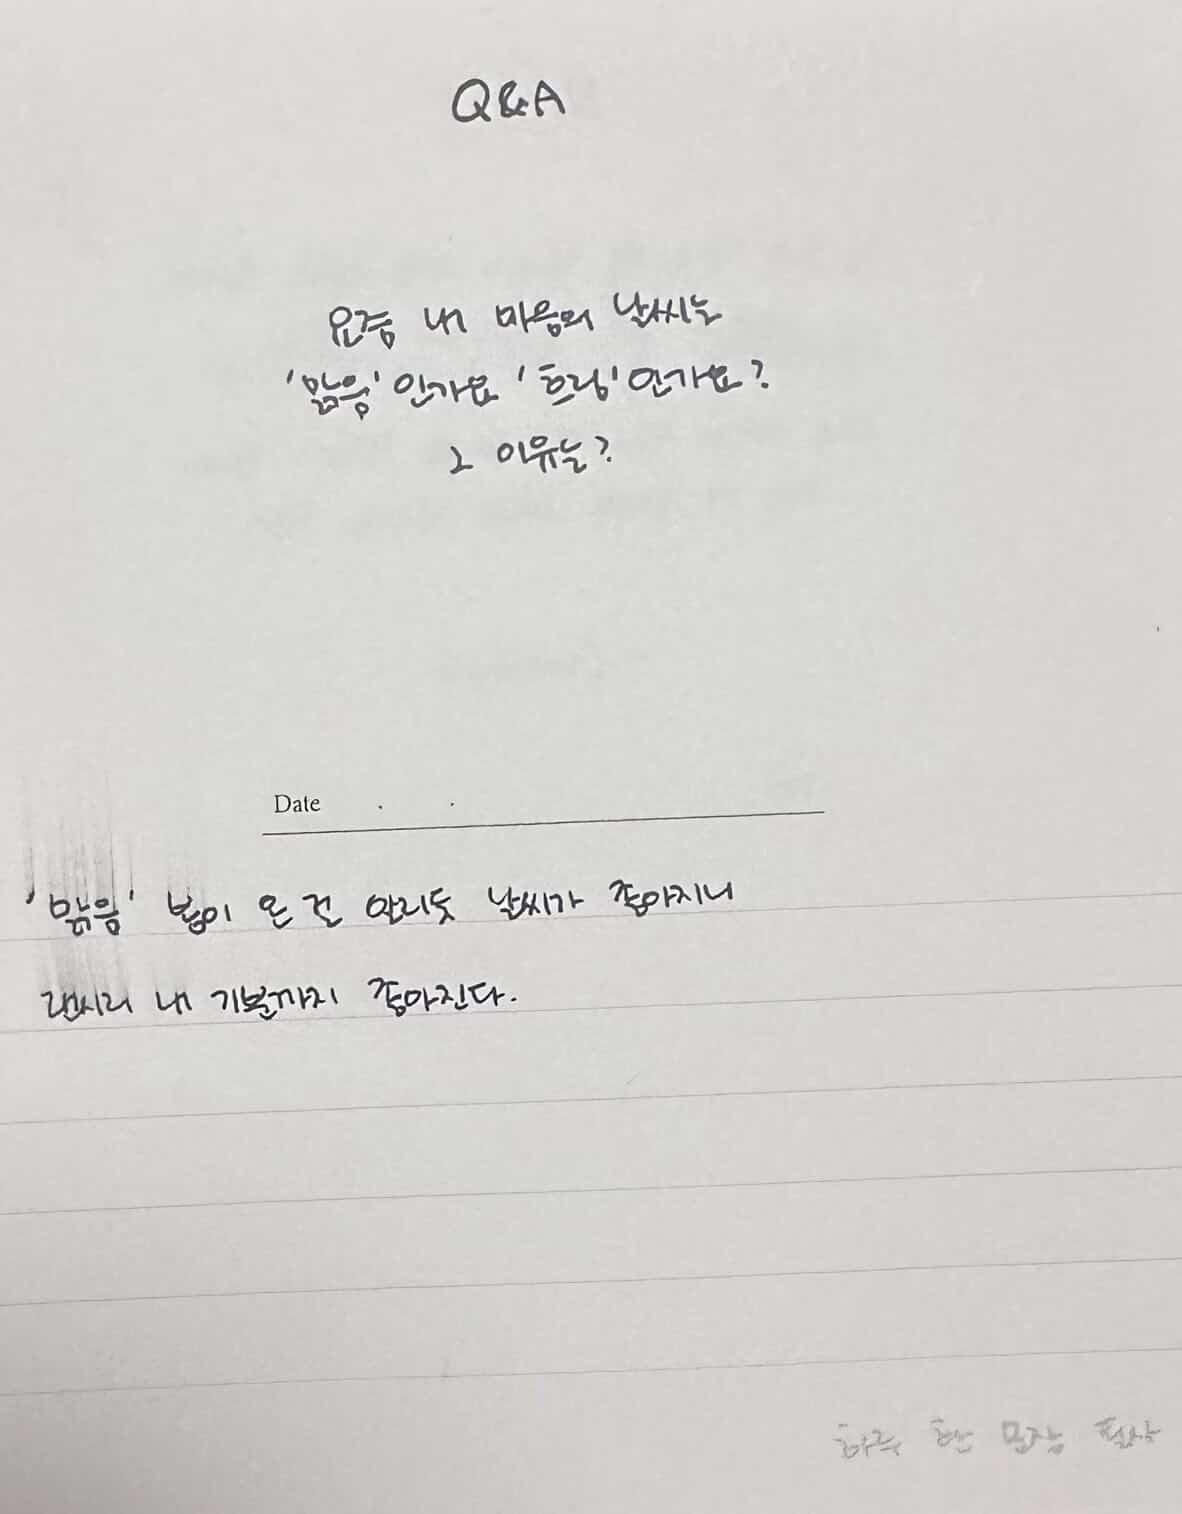 Q&A
요즘 내 마음의 날씨는
'맑음'인가요 '흐림'인가요?
그 이유는?
Date . .
'맑음' 봄이 온 걸 알리듯 날씨가 좋아지니
괜시리 내 기분까지 좋아진다.
하루 한 문장 필사